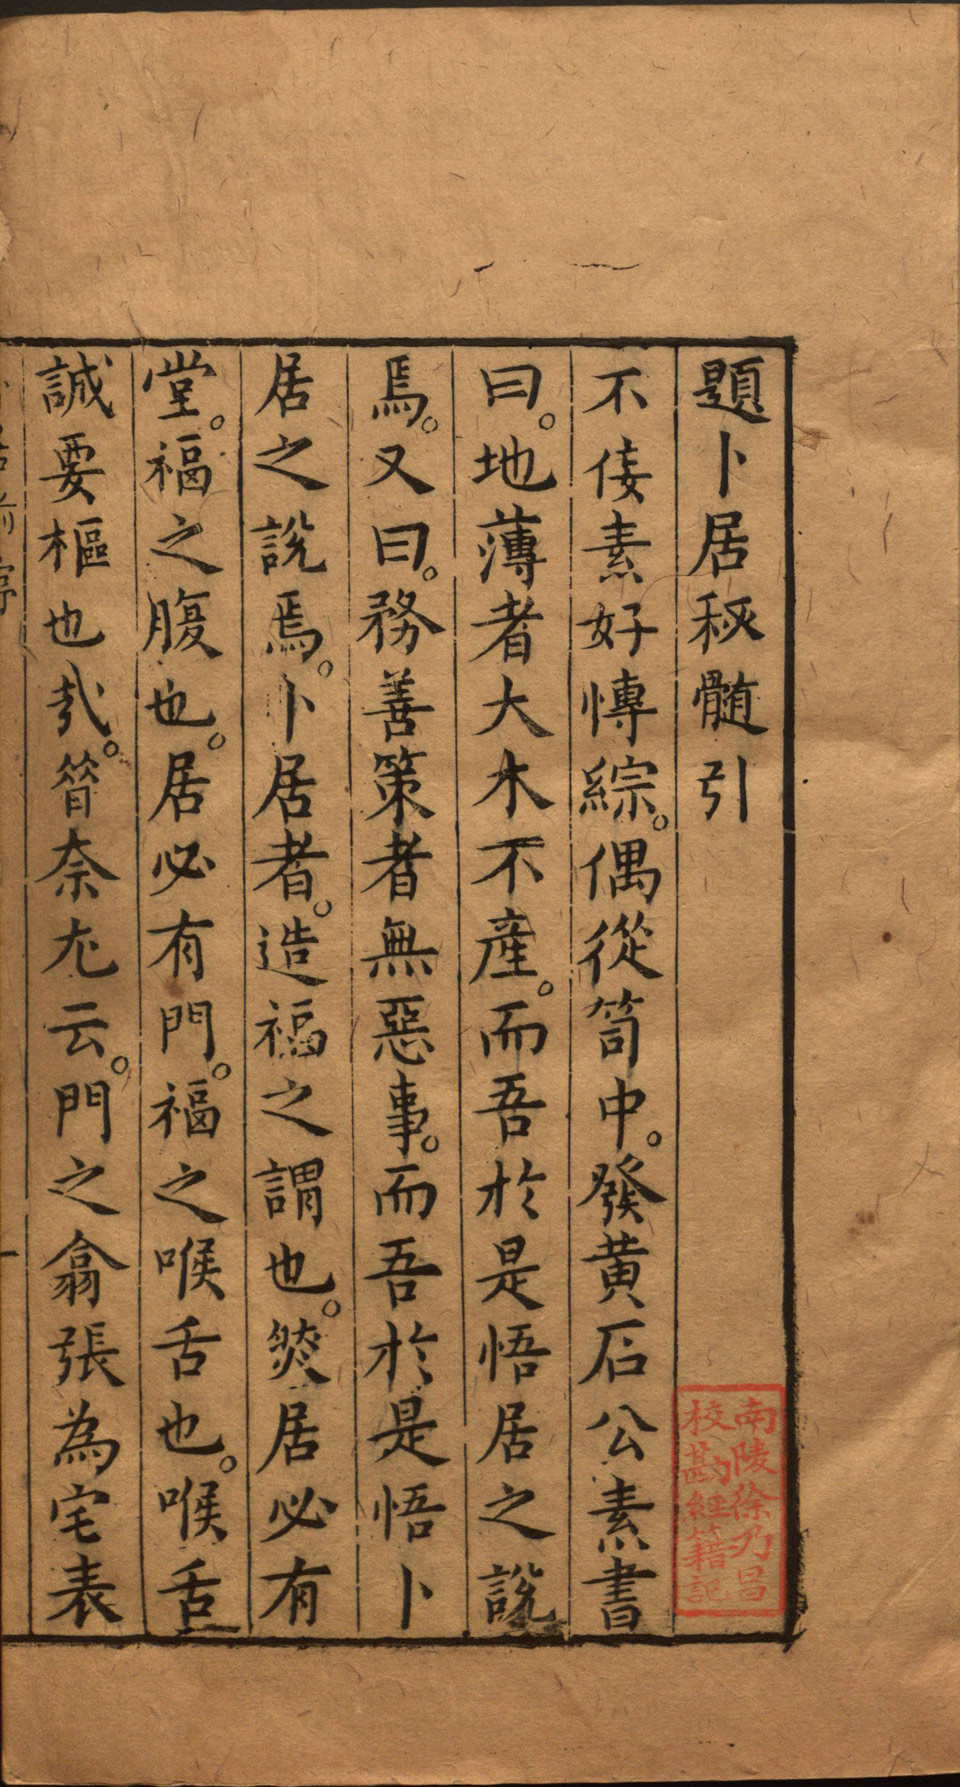 題卜居秘髓引
不佞素好博綜。偶從笥中。發黄石公素書
曰。地薄者大木不産。而吾於是悟居之説
焉。又曰。務善策者無惡事。而吾於是悟卜
居之説焉。卜居者。造福之謂也。然居必有
堂。福之腹也。居必有門。福之喉舌也。喉舌
誠要樞也哉。昝奈尢云。門之翕張為宅表
南陵徐乃昌
校勘經籍記